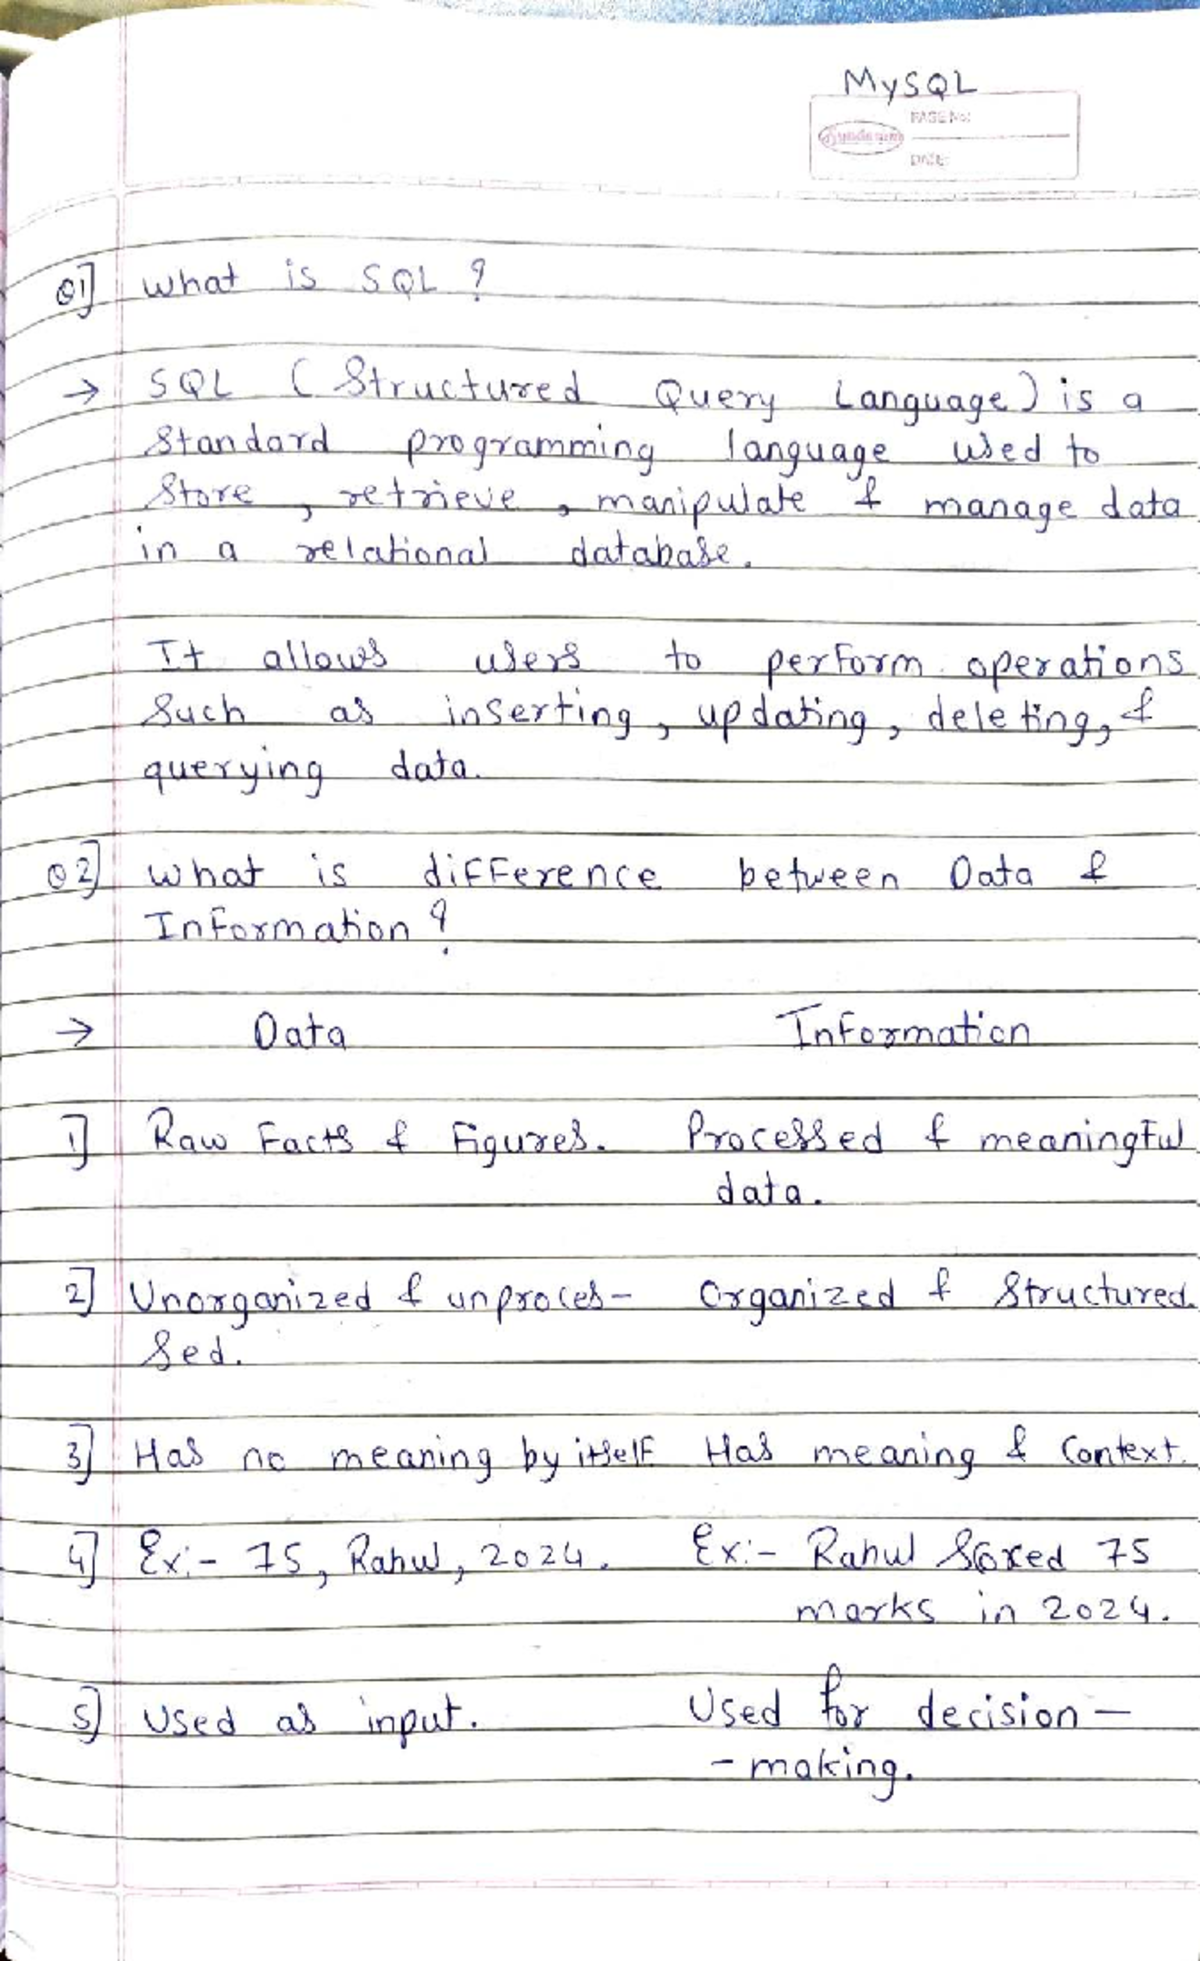 MySQL
PAGE No:
DATE:
Q1] What is SQL ?
→ SQL ( Structured Query Language) is a
standard programming language used to
store , retrieve , manipulate & manage data
in a relational database.
It allows users to perform operations
such as inserting, updating, deleting, &
querying data.
Q2] What is difference between Data &
Information ?
→ Data Information
1] Raw Facts & Figures. Processed & meaningful
data.
2] Unorganized & unproces- Organized & Structured.
sed.
3] Has no meaning by itself Has meaning & Context.
4] Ex:- 75, Rahul, 2024. Ex:- Rahul Scored 75
marks in 2024.
5] Used as input. Used for decision -
- making.